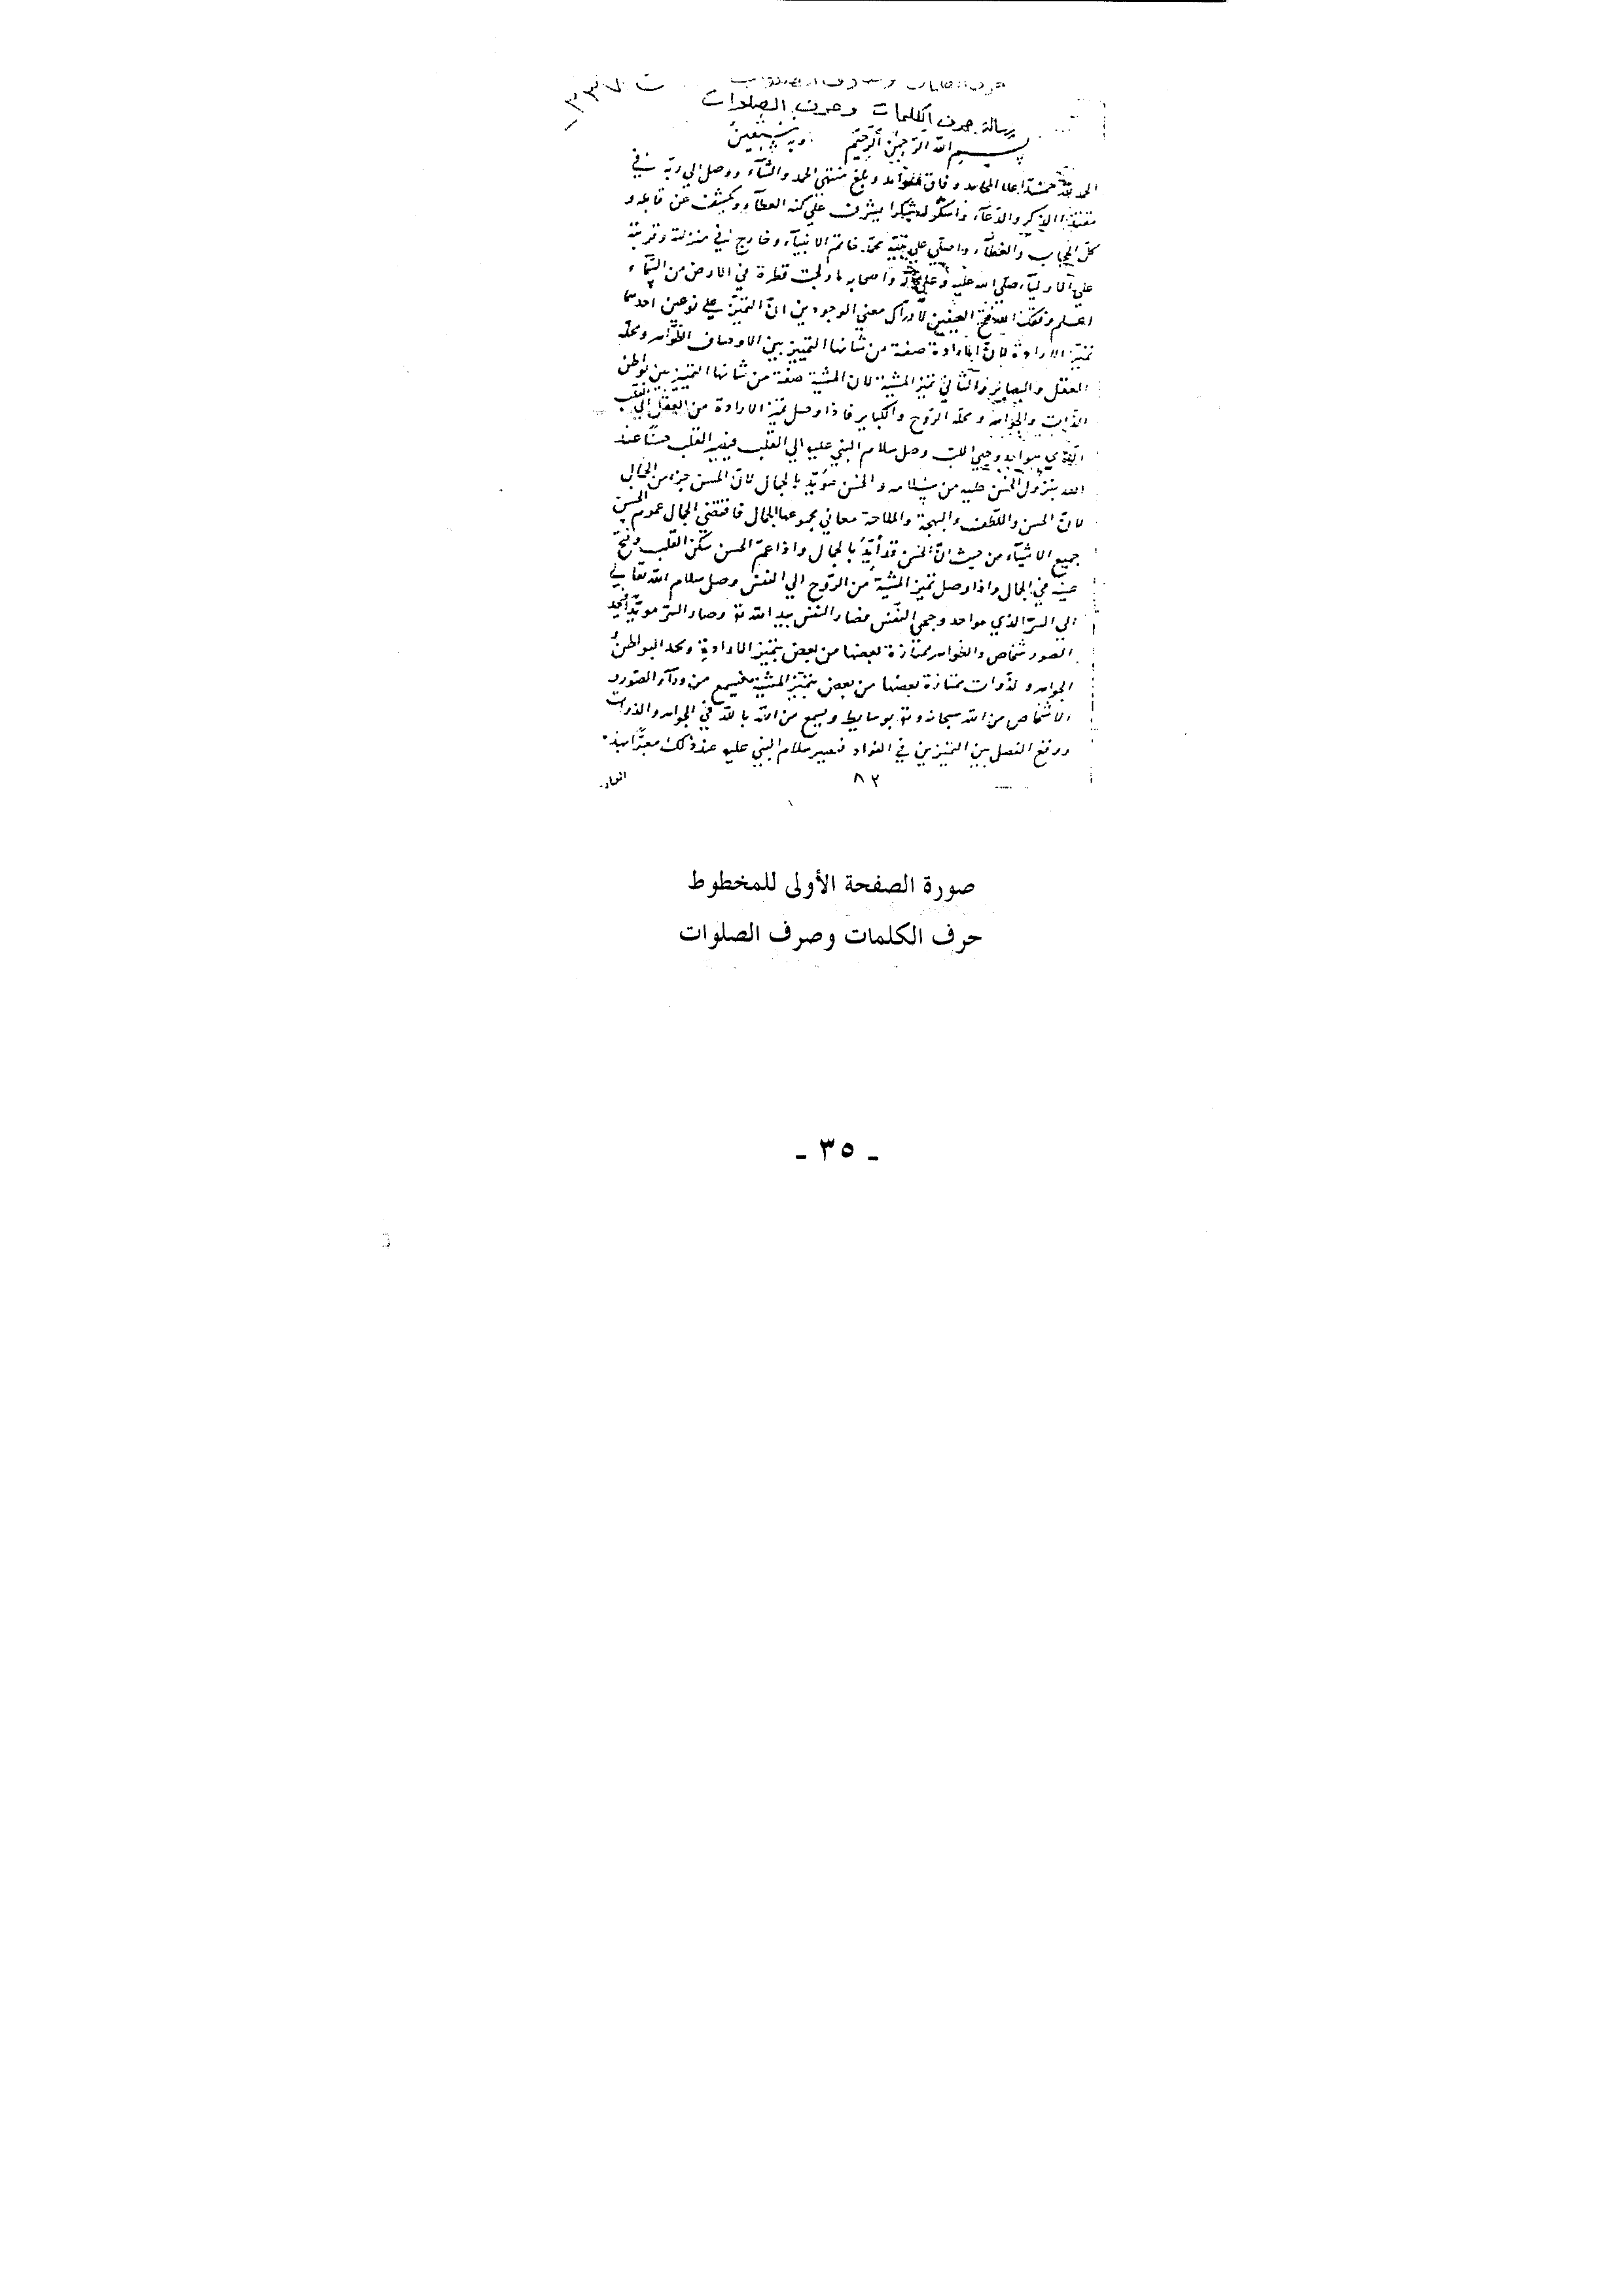 رسالة حرف الكلمات وصرف الصلوات
بسم الله الرحمن الرحيم وبه نستعين
الحمد لله المحامد وفاق وبلغ منتهى الحمد والثنآء ووصل الى ربه في
الذكر والدعآء واشكره شكرا يشرف على كنه العطآء ويكشف عن
كل الحجاب والغطآء واصلي على نبيه محمد خاتم الانبيآء في منزلته
على الاوليآء صلى الله عليه وعلى واصحابه ما قطرة في الارض من السمآء
اعلم وفقك الله لادراك معنى الوجودين ان التميز على نوعين احدهما
تميز الارادة لان الارادة صفة من شانها التمييز بين الاوصاف الظواهر ومحله
العقل والبصاير والثاني تميز المشية لان المشية صفة من شانها التمييز بين بواطن
الذات والجواهر ومحله الروح فاذا وصل تميز الارادة من العقل الى القلب
الذي هو وصل سلام النبي عليه الى القلب فيصير القلب حسنا عند
الله بنزول الحسن عليه من سلامه والحسن مؤيد بالجمال لان الحسن جزء من الجمال
لان الحسن واللطف والبهجة والملاحة معاني مجموعها الجمال فاقتضى الجمال عموم الحسن
جميع الاشيآء من حيث ان الحسن قد أيد بالجمال واذا عم الحسن سكن القلب وفتح
عينه في الجمال واذا وصل تميز المشية من الروح الى النفس وصل سلام الله تعالى
الى السر الذي هو احد وجهي النفس فصار النفس بيد الله تع وصار السر مويدا
الصور شخاص والظواهر ممتازة بعضها من بعض بتميز الارادة ويجد البواطن
الجواهر ولذوات ممتازة بعضها من بعض بتميز المشية فيسمع من ورآء الصور و
الاشخاص من الله سبحانه وتع بوسايط ويسمع من الله بالله في الجواهر والذوات
ووقع الفصل بين التميزين في الفؤاد فيصير سلام النبي عليه عند ذلك
٨٢
صورة الصفحة الأولى للمخطوط
حرف الكلمات وصرف الصلوات
- ٣٥ -